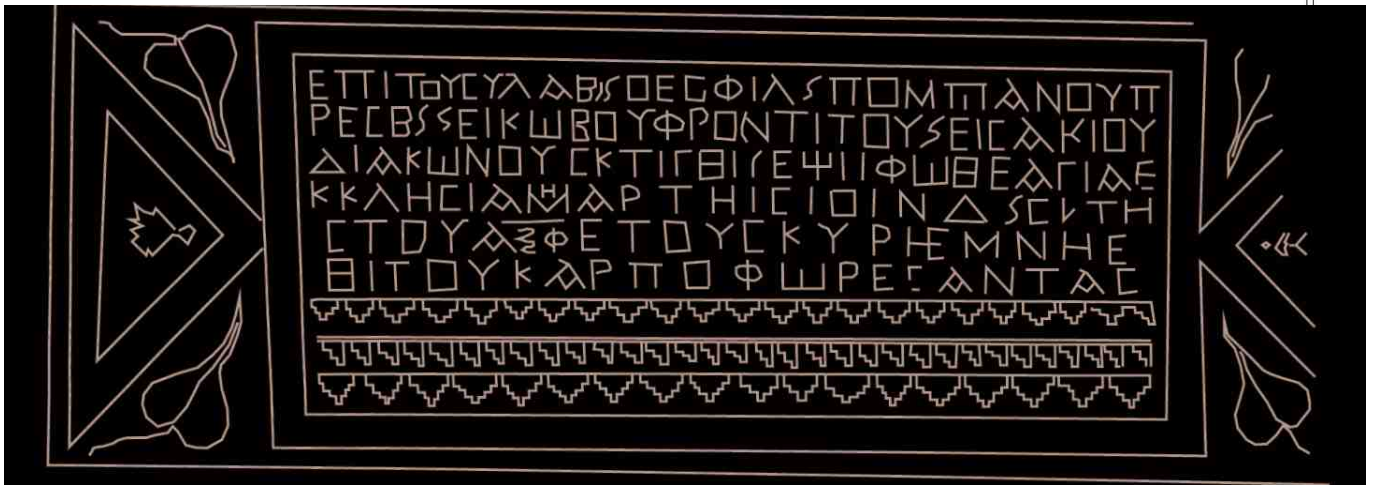 ΕΠΙΤΟΥCΥΛΑΒSΟΕCΦΙΛSΠΟΜΠΙΑΝΟΥΠ
ΡΕCΒSSΕΙΚΩΒΟΥΦΡΟΝΤΙΤΟΥSΕΙCΑΚΙΟΥ
ΔΙΑΚΩΝΟΥCΚΤΙΓΘΙCΕΨΙΙΦΩΘΕΑΓΙΑΕ
ΚΚΛΗCΙΑΜΑΡΤΗΙCΙΟΙΝΔSCVΤΗ
CΤΟΥΑΞΦΕΤΟΥCΚΥΡΗΕΜΝΗΕ
ΘΙΤΟΥΚΑΡΠΟΦΩΡΕCΑΝΤΑC